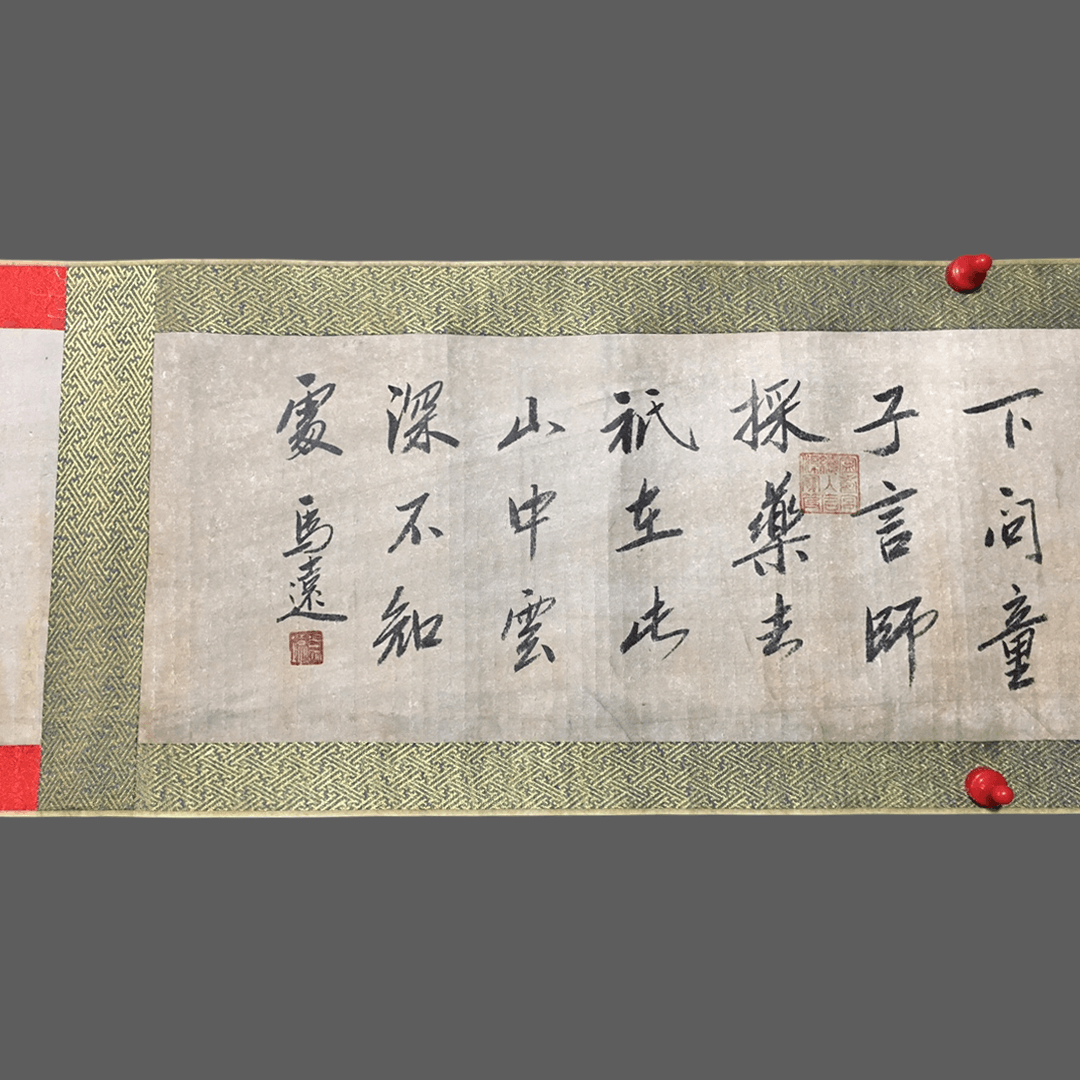 下問童
子言師
採藥去
祇在此
山中雲
深不知
處 馬遠